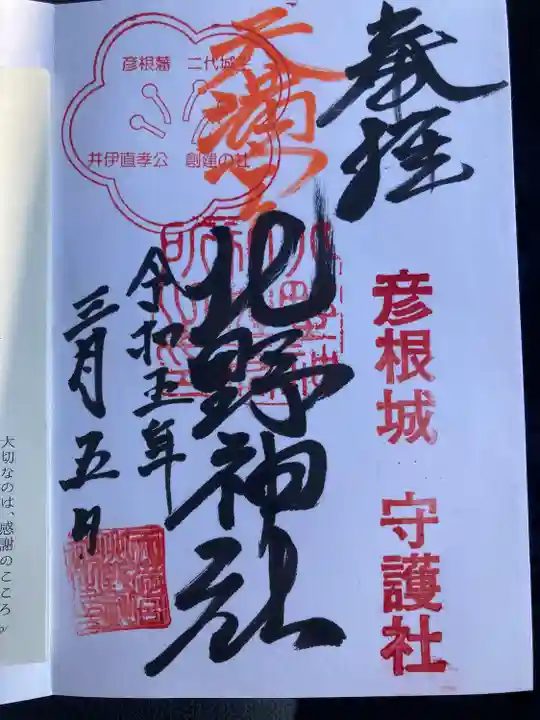 奉拝
彦根城 守護社
天満宮
北野神社
彦根藩 二代城主
井伊直孝公 創建の社
令和五年
三月五日
大切なのは、感謝のこころ